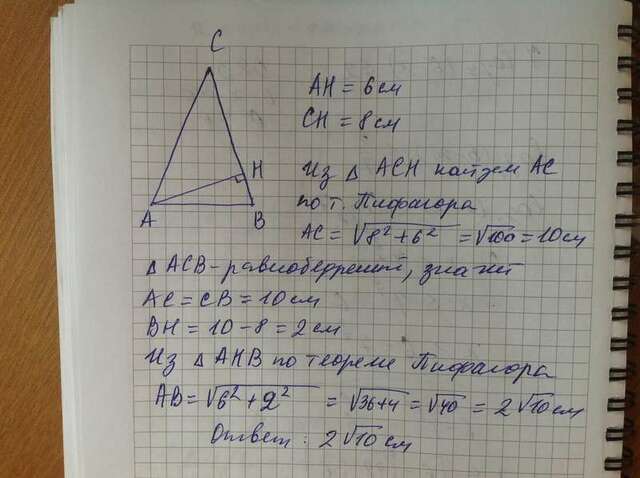 C
H
B
A
AH = 6см
CH = 8см
Из △ ACH найдем AC
по т. Пифагора
AC = √8² + 6² = √100 = 10см
△ ACB - равнобедренный, значит
AC = CB = 10см
BH = 10 - 8 = 2см
Из △ AHB по теореме Пифагора
AB = √6² + 2² = √36+4 = √40 = 2√10 см
Ответ: 2√10 см